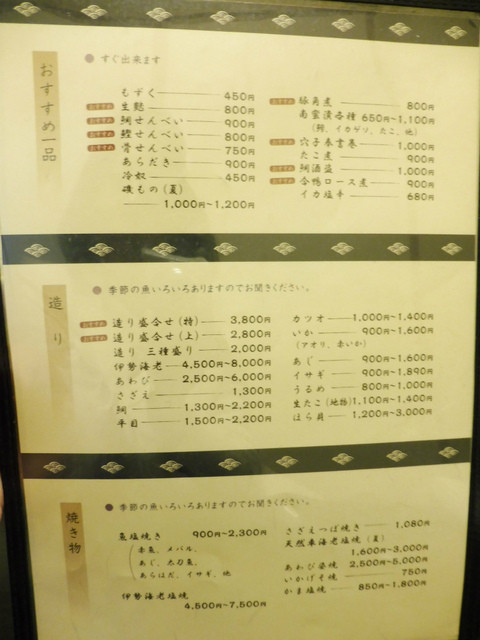 おすすめ一品
● すぐ出来ます
もずく 450円
おすすめ 生麩 800円
おすすめ 鯛せんべい 900円
おすすめ 鱧せんべい 800円
おすすめ 骨せんべい 750円
あらだき 900円
冷奴 450円
磯もの(夏)
1,000円〜1,200円
おすすめ 豚角煮 800円
南蛮漬各種 650円〜1,100円
(鯵、イカゲソ、たこ、他)
おすすめ 穴子春巻 1,000円
たこ煮 900円
おすすめ 鯛酒盗 1,000円
おすすめ 合鴨ロース煮 900円
イカ塩辛 680円
造り
● 季節の魚いろいろありますのでお聞きください。
おすすめ 造り盛合せ(特) 3,800円
おすすめ 造り盛合せ(上) 2,800円
造り 三種盛り 2,000円
伊勢海老 4,500円〜8,000円
あわび 2,500円〜6,000円
さざえ 1,300円
鯛 1,300円〜2,200円
平目 1,500円〜2,200円
カツオ 1,000円〜1,400円
いか 900円〜1,600円
(アオリ、赤いか)
あじ 900円〜1,600円
イサギ 900円〜1,890円
うるめ 800円〜1,000円
生たこ(地物) 1,100円〜1,400円
ほら貝 1,200円〜3,000円
焼き物
● 季節の魚いろいろありますのでお聞きください。
魚塩焼き 900円〜2,300円
赤魚、メバル、
あじ、太刀魚、
あらはだ、イサギ、他
伊勢海老塩焼
4,500円〜7,500円
さざえつぼ焼き 1,080円
天然車海老塩焼(夏)
1,600円〜3,000円
あわび姿焼 2,500円〜5,000円
いかげそ焼 750円
かま塩焼 850円〜1,800円